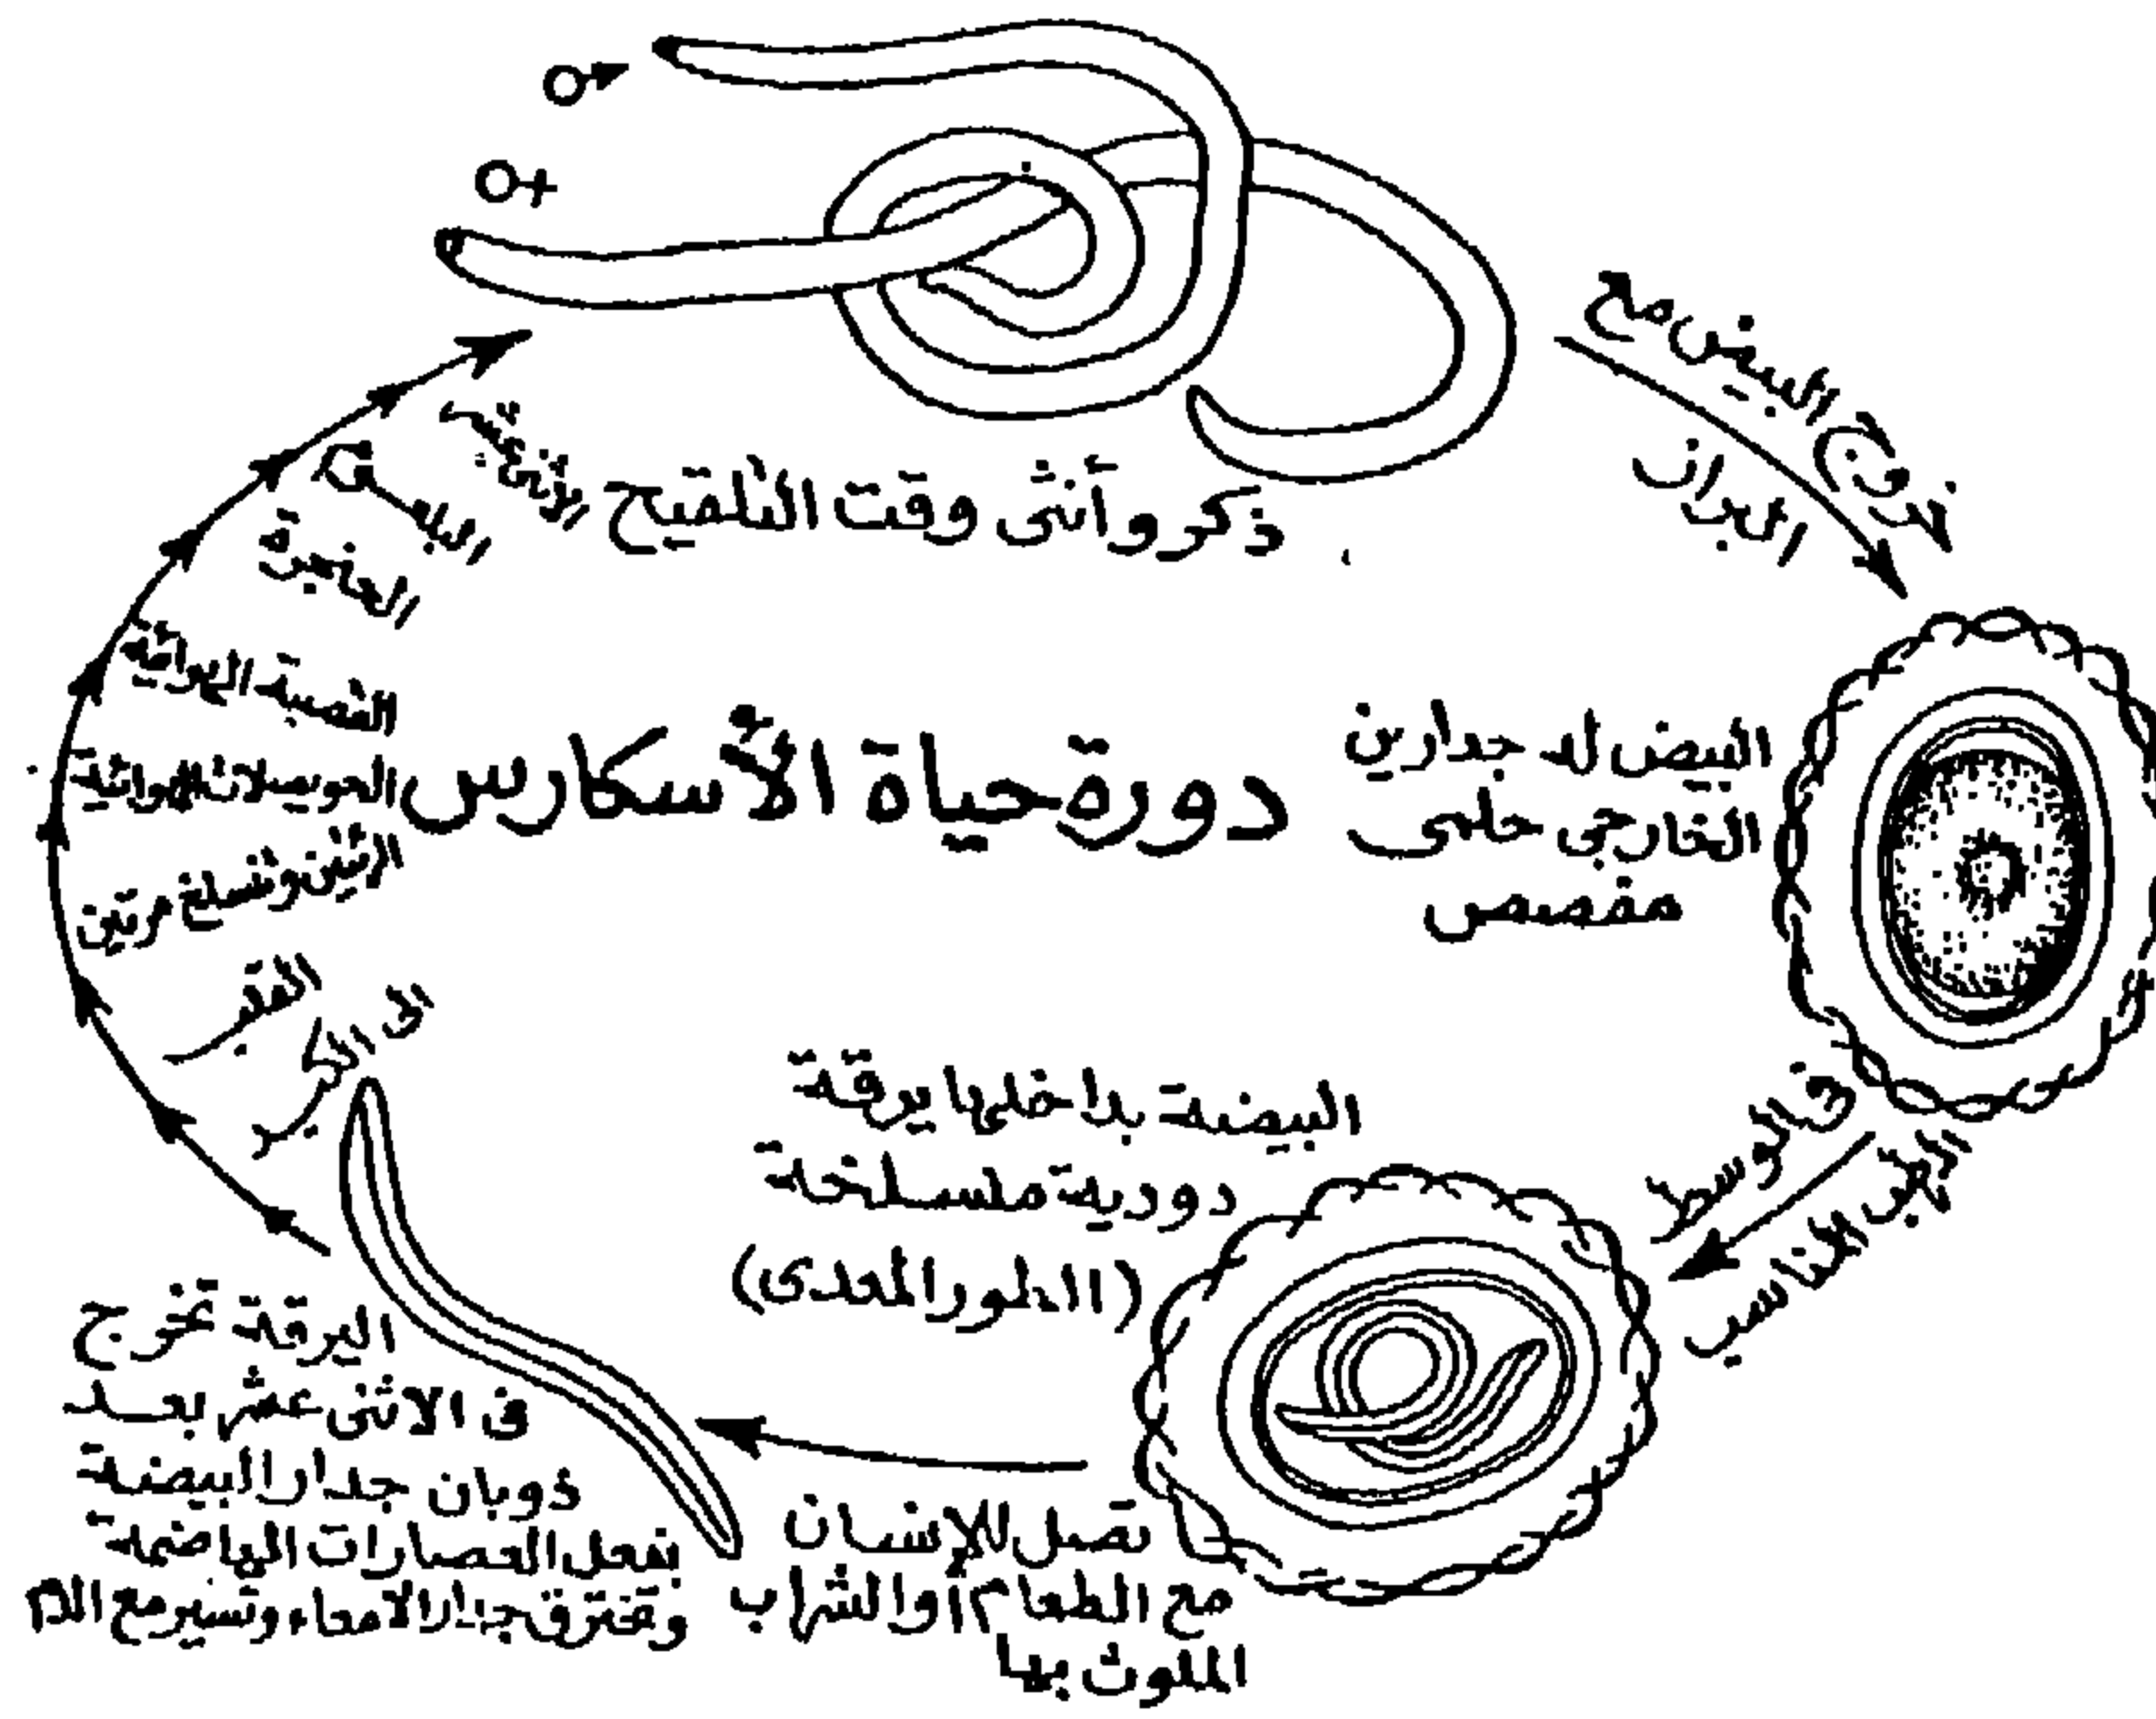 ذكر وأنثى وقت التلقيح
خروج البيض مع
البراز
دورة حياة الأسكارس
البيض له جدارين
الخارجى حلمى
مفصص
فى الوسط
المناسب
البيضة بداخلها يرقة
دودية منسلخة
(الطور المعدى)
تصل للإنسان
مع الطعام أو الشراب
الملوث بها
اليرقة تخرج
فى الاثنى عشر بعد
ذوبان جدار البيضة
بفعل العصارات الهاضمة
وتخترق جدار الأمعاء وتسير مع الدم
القلب
الرئتين وتنسلخ مرتين
الحويصلات الهوائية
القصبة الهوائية
الحنجرة